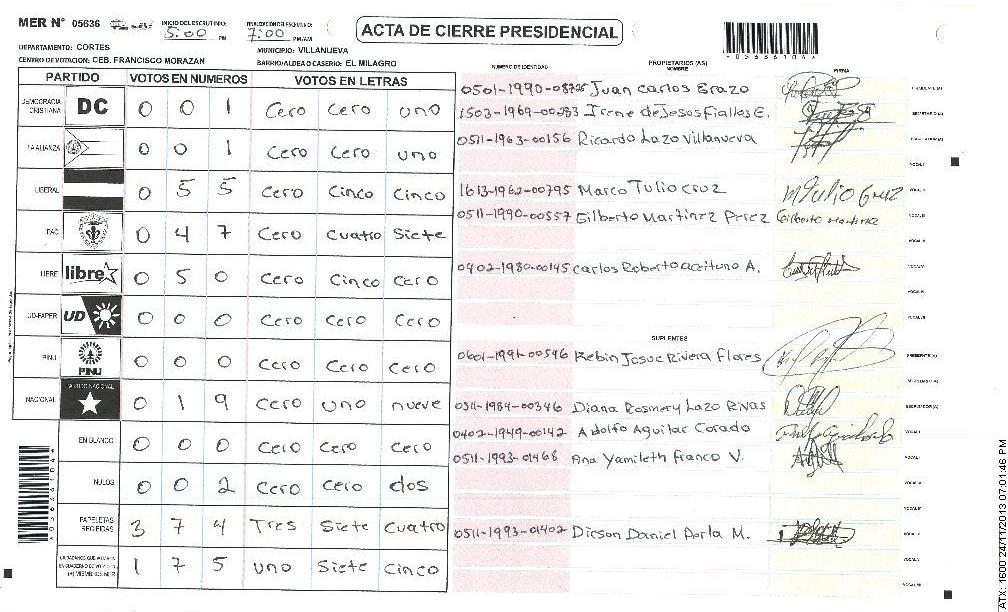 MER N° 05636 INICIO DEL ESCRUTINIO: 5:00 PM FINALIZACION DEL ESCRUTINIO: 7:00 PM/AM ACTA DE CIERRE PRESIDENCIAL
DEPARTAMENTO: CORTES MUNICIPIO: VILLANUEVA
CENTRO DE VOTACION: CEB. FRANCISCO MORAZAN BARRIO/ALDEA O CASERIO: EL MILAGRO
NUMERO DE IDENTIDAD PROPIETARIOS (AS) NOMBRE FIRMA
PARTIDO VOTOS EN NUMEROS VOTOS EN LETRAS
DEMOCRACIA CRISTIANA DC 0 0 1 Cero Cero uno
LA ALIANZA 0 0 1 Cero Cero uno
LIBERAL 0 5 5 Cero Cinco Cinco
PAC 0 4 7 Cero Cuatro Siete
LIBRE libre 0 5 0 Cero Cinco Cero
UD-FAPER UD 0 0 0 Cero Cero Cero
PINU PINU 0 0 0 Cero Cero Cero
NACIONAL PARTIDO NACIONAL 0 1 9 Cero uno nueve
EN BLANCO 0 0 0 Cero Cero Cero
NULOS 0 0 2 Cero Cero dos
PAPELETAS RECIBIDAS 3 7 4 Tres Siete Cuatro
1 7 5 uno Siete Cinco
Juan Carlos Erazo
1503-1969-00283 Irene de Jesos Fiallos E.
0511-1963-00156 Ricardo Lazo Villanueva
1613-1962-00795 Marco Tulio Cruz
0511-1990-00557 Gilberto Martinez Perez Gilberto Martinez
0402-1980-00145 Carlos Roberto aceituno A.
SUPLENTES
0601-1991-00546 Kebin Josue Rivera Flores
0511-1984-00346 Diana Rosmery Lazo Rivas
0402-1949-00142 Adolfo Aguilar
0511-1993-01468 Ana Yamileth Franco V.
0511-1993-01402 Daniel
ATX: 1600 24/11/2013 07:01:46 PM